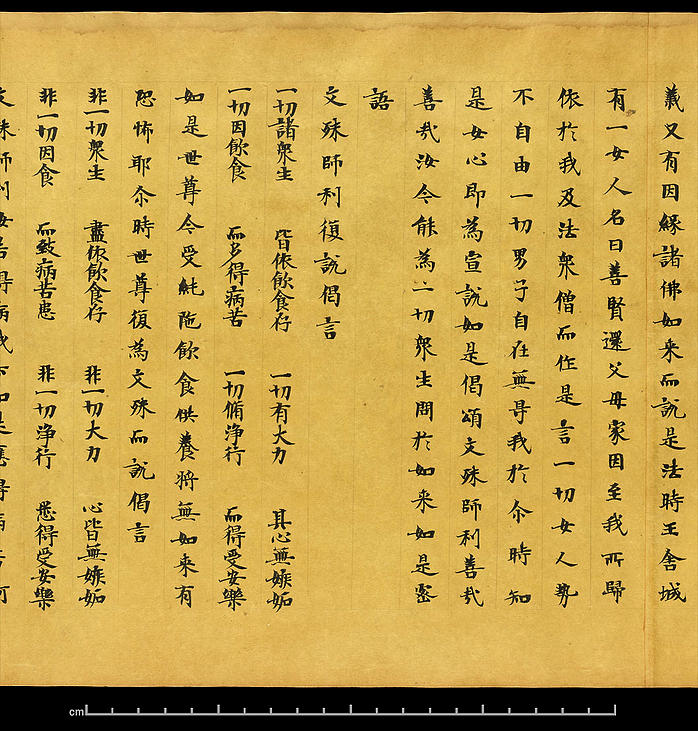 義又有因緣諸佛如来而說是法時王舎城
有一女人名曰善賢還父母家因至我所歸
依於我及法衆僧而作是言一切女人勢
不自由一切男子自在無㝵我於尒時知
是女心即為宣說如是偈頌文殊師利善㢤
善㢤汝今能為一切衆生問於如来如是密
語
文殊師利復說偈言
一切諸衆生 皆依飲食存 一切有大力 其心無嫉妬
一切因飲食 而多得病苦 一切脩淨行 而得受安樂
如是世尊今受純陁飲食供養將無如来有
恐怖耶尒時世尊復為文殊而說偈言
非一切衆生 盡依飲食存 非一切大力 心皆無嫉妬
非一切因食 而致病苦患 非一切淨行 悉得受安樂
文殊師利汝若得病我
cm